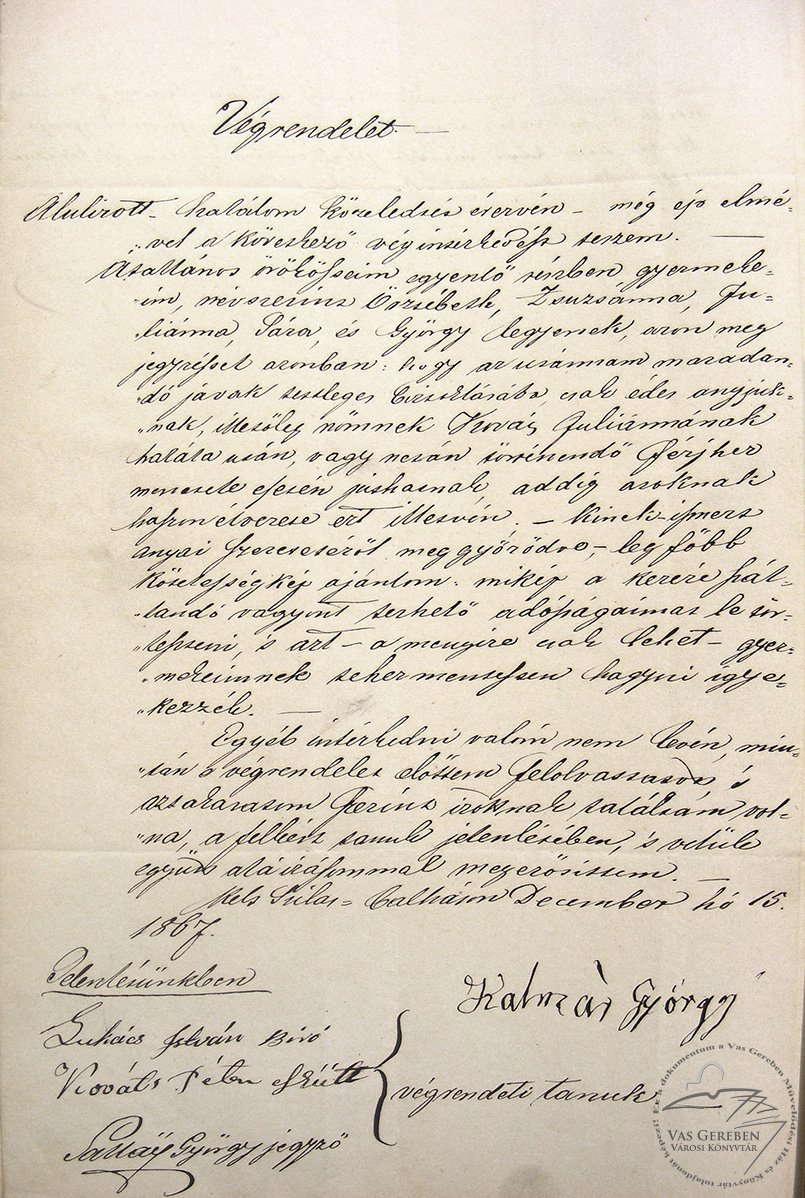 Végrendelet —
Alulirott – halálom közeledtét érezvén – még ép elmé-
„vel a következő végintézkedést teszem. —
Általános örököseim egyenlő részben gyermeke-
„im, névszerint Örzsébeth, Zsuzsánna, Ju-
„liánna, Sára, és György legyenek, azon meg
jegyzéssel azonban: hogy az utánnam maradan-
„dó jávak tettleges birtoklásába csak édes anyjuk-
„nak, illetőleg nőmnek Kováts Juliánnának
halála után, vagy netán történendő férjhez
menetele esetén juthatnak, addig azoknak
haszonélvezete ezt illetvén. – Kinek ismert
anyai szeretetéről meggyőződve, – leg főbb
kötelességkép ajánlom: mikép a kezére szál-
„landó vagyont terhelő adósságaimat le tör-
„leszteni, 's azt – a menyire csak lehet – gyer-
„mekeimnek tehermentessen hagyni igye-
„kezzék. —
Egyéb intézkedni valóm nem lévén, miu-
„tán e végrendelet előttem felolvastatott 's
azt akaratom szerint irottnak találtám vol-
„na, a felkért tanuk jelenlétében, 's velük
együtt aláirásommal megerősittem. —
Kelt Szilas-Balháson December hó 15.
1867.
Jelenlétünkben
Kalmár György
Lukács István Biró
Kováts Péter eskütt
végrendeleti tanuk
György jegyző
Ez a dokumentum a Vas Gereben Művelődési Ház és Könyvtár tulajdonát képezi!
VAS GEREBEN
VÁROSI KÖNYVTÁR